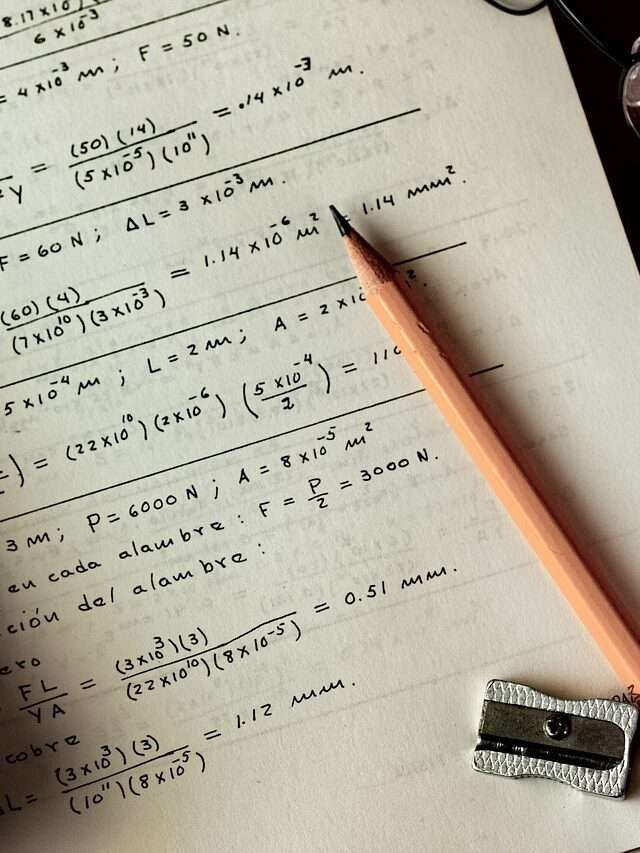 8.17×10
6×10⁻³
= 4×10⁻³ m ; F = 50 N.
Y = (50)(14) / (5×10⁻⁵)(10¹¹) = .14×10⁻³ m.
F = 60 N ; ΔL = 3 ×10⁻³ m.
(60)(4) / (7×10¹⁰)(3×10⁻³) = 1.14×10⁻⁶ m² = 1.14 mm².
5×10⁻⁴ m ; L = 2 m ; A = 2×10
) = (22×10¹⁰)(2×10⁻⁶) (5×10⁻⁴ / 2) = 110
3 m ; P = 6000 N ; A = 8×10⁻⁵ m²
en cada alambre : F = P/2 = 3000 N.
ción del alambre :
ero
FL / YA = (3×10³)(3) / (22×10¹⁰)(8×10⁻⁵) = 0.51 mm.
cobre
ΔL = (3×10³)(3) / (10¹¹)(8×10⁻⁵) = 1.12 mm.